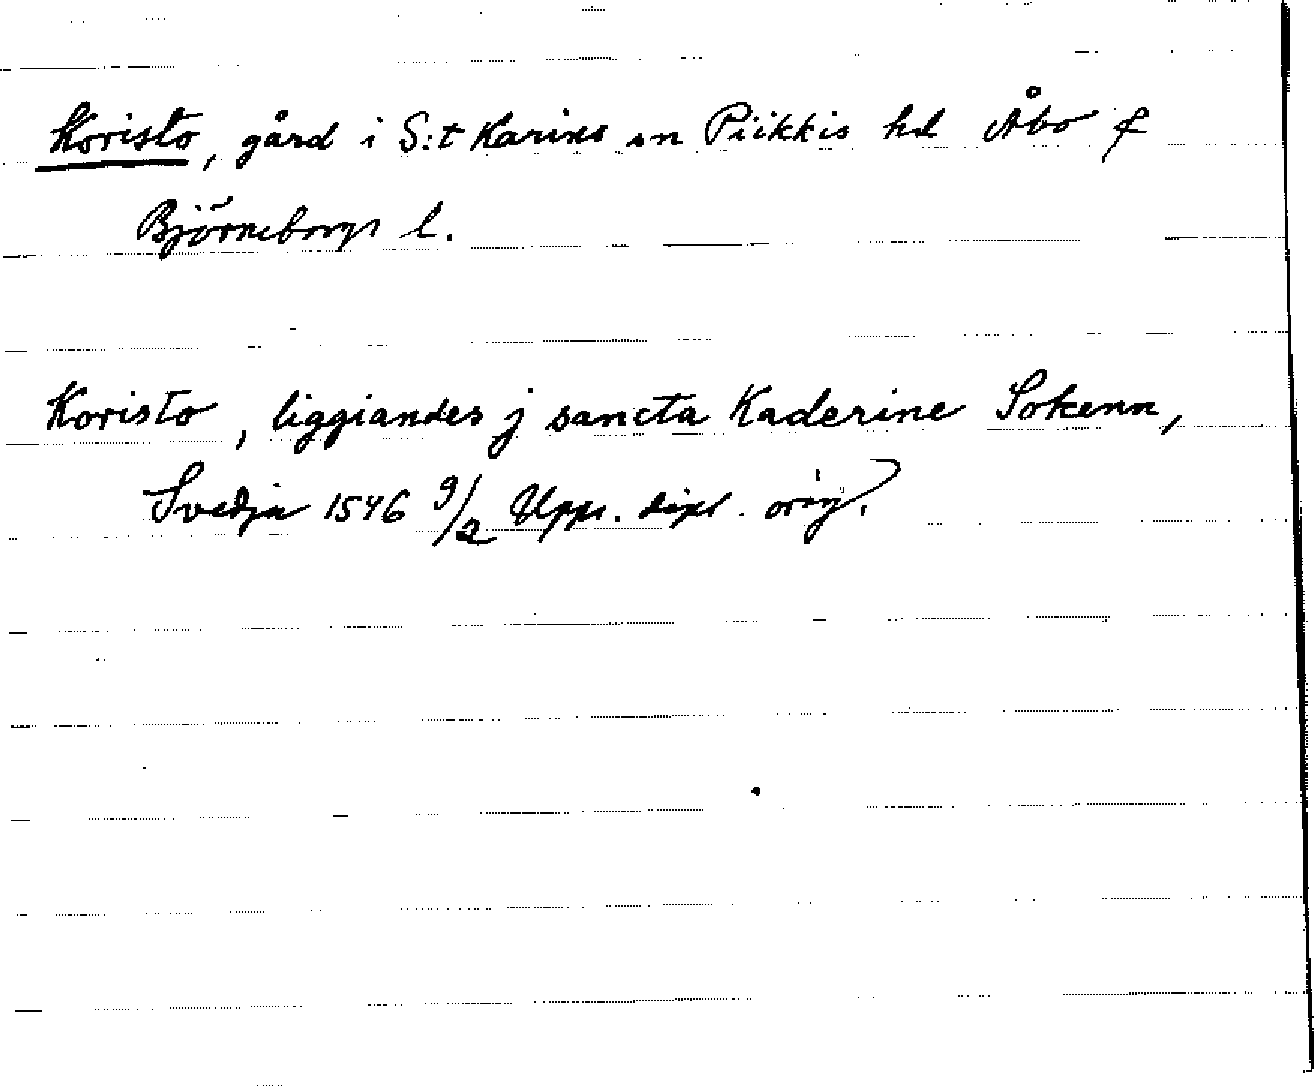 Koristo, gård i S:t Karins sn Piikkis hd Åbo &
Björneborgs l.
Koristo, liggiandes j sancta Kaderine Sokenn,
Svedja 1546 9/2 Upps. dipl. orig.